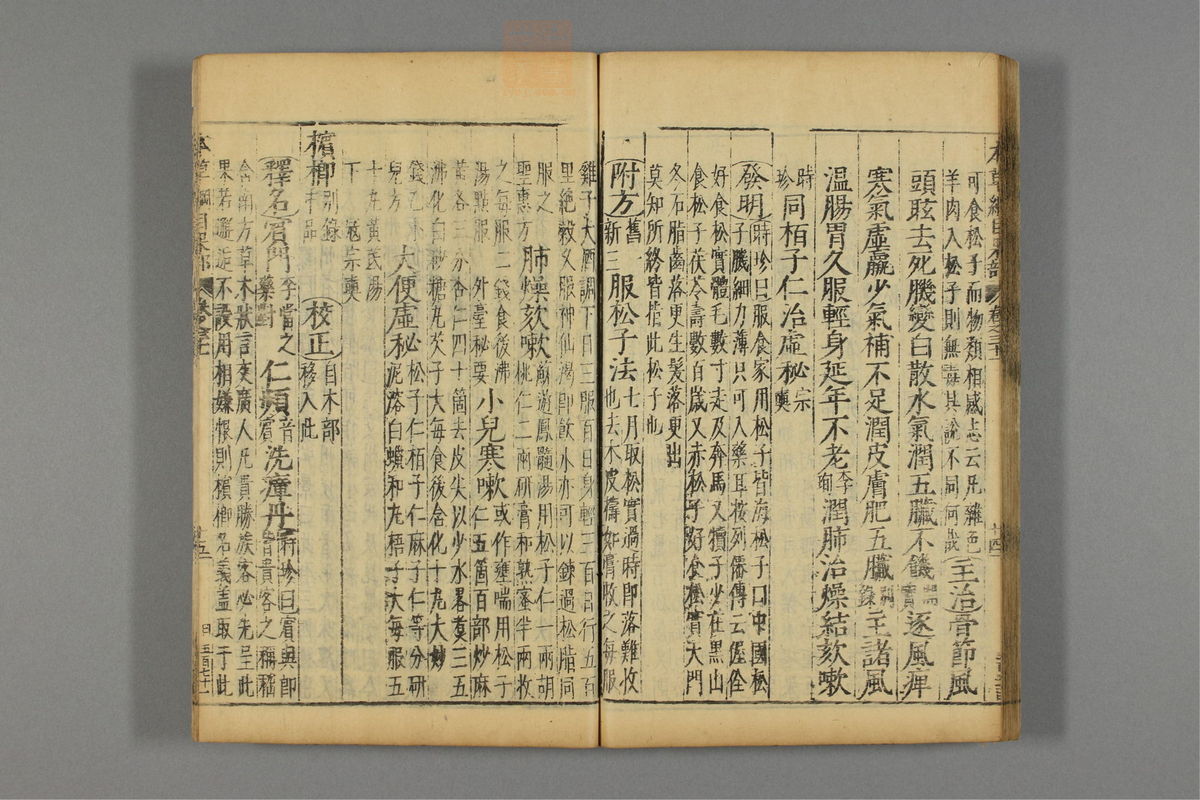 可食松子而物類相感志云凡雜色
羊肉入松子則無毒其說不同何哉 主治骨節風
頭眩去死肌變白散水氣潤五臟不饑開寶逐風痺
寒氣虛羸少氣補不足潤皮膚肥五臟別錄主諸風
溫腸胃久服輕身延年不老李珣潤肺治燥結欬嗽
時珍同栢子仁治虛秘宗奭
發明時珍曰服食家用松子皆海松子曰中國松
子肌細力薄只可入藥耳按列僊傳云偓佺
好食松實體毛數寸走及奔馬又犢子少在黑山
食松子茯苓壽數百歲又赤松子好食松實天門
冬石脂齒落更生髮落更出
莫知所終皆指此松子也
附方舊一新三 服松子法七月取松實過時即落難收
也去木皮擣如膏收之每服
雞子大酒調下日三服百日身輕三百日行五百
里絶穀久服神仙渴即飲水亦可以鍊過松脂同
服之 肺燥欬嗽蘇遊鳳髓湯用松子仁一兩胡
聖惠方 桃仁二兩研膏和熟蜜半兩收
之每服二錢食後沸
湯點服 外臺秘要 小兒寒嗽或作壅喘用松子
仁五箇百部炒麻
黃各三分杏仁四十箇去皮尖以少水畧煑三五
沸化白砂糖丸芡子大每食後含化十丸大妙
錢乙小
兒方 大便虛秘松子仁栢子仁麻子仁等分研
泥溶白蠟和丸梧子大每服五
十丸黃芪湯
下 寇宗奭
檳榔別錄中品 校正自木部移入此
釋名賔門李當之藥對 仁頻音賔 洗瘴丹時珍曰賔與郎
皆貴客之稱稽
含南方草木狀言交廣人凡貴勝族客必先呈此
果若邂逅不設用相嫌恨則檳榔名義蓋取于此